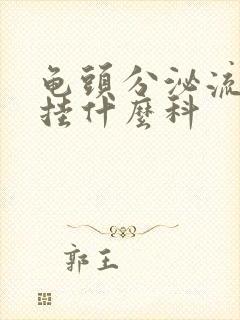 龟頭分泌流
挂什麼科
郭王